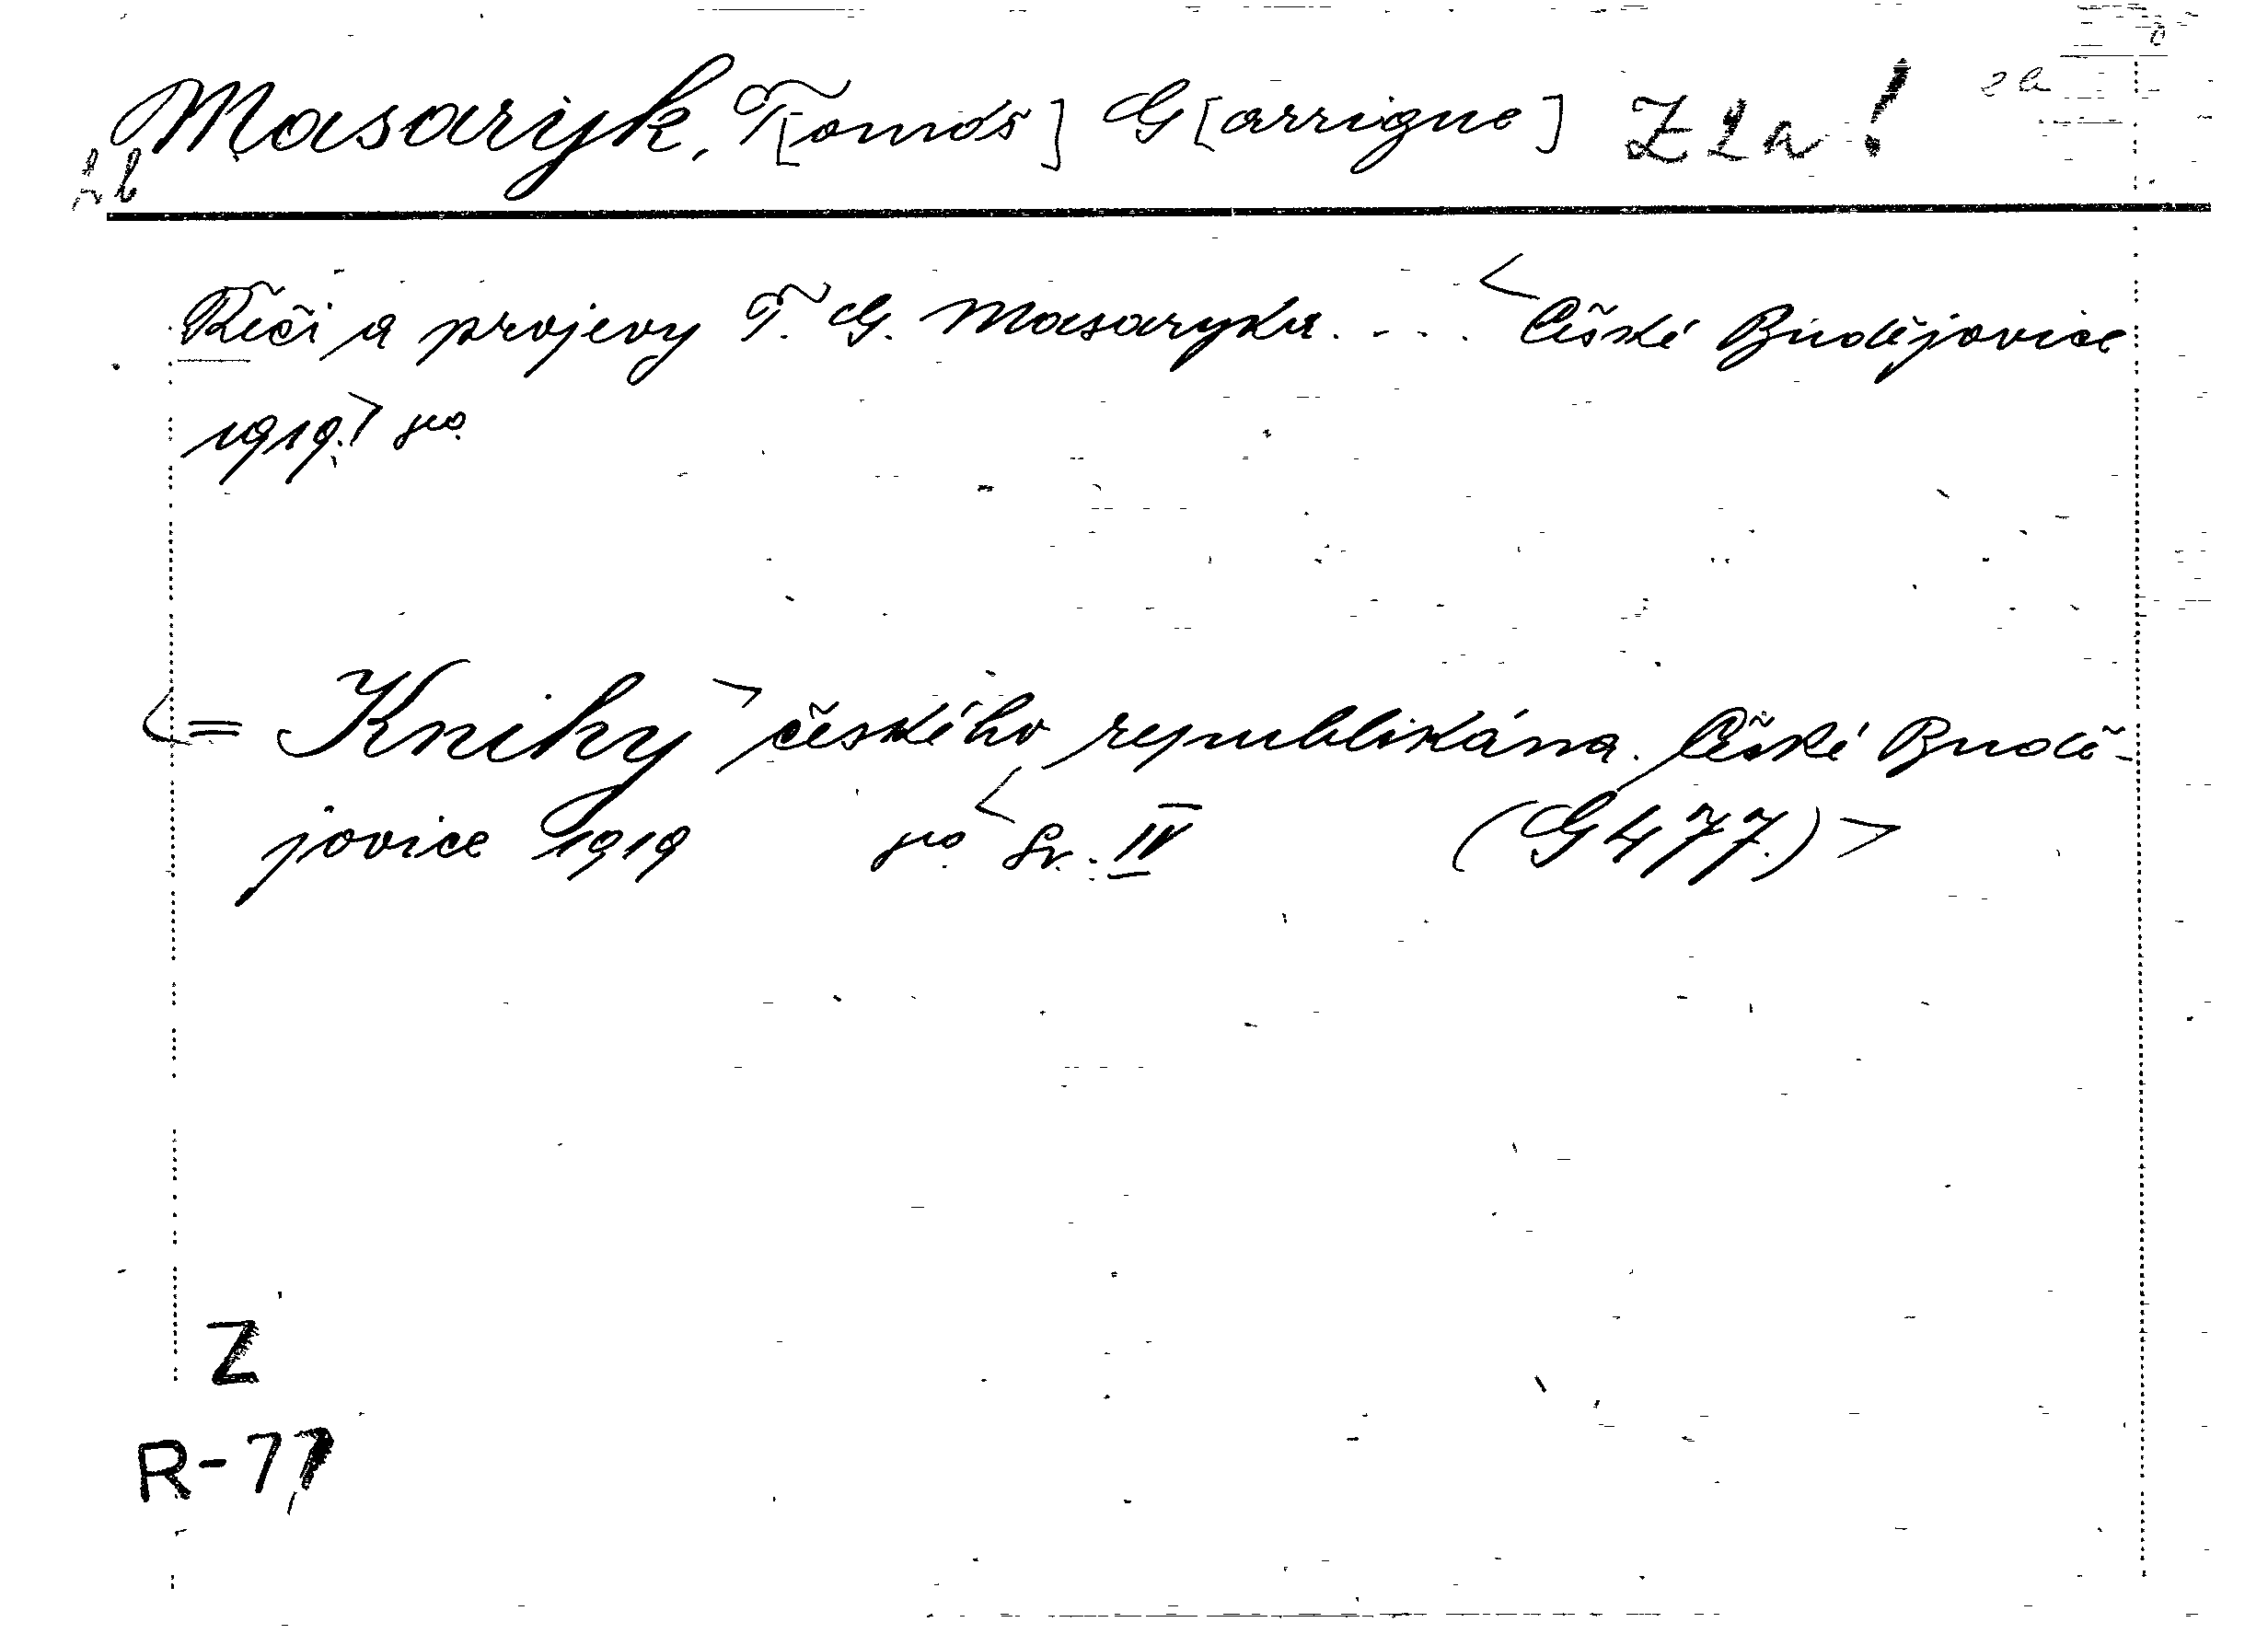 Masaryk, T[omáš] G[arrigue] Z 2a!
2b
Řeči a projevy T. G. Masaryka. ... <České Budějovice
1919.> 8º
<= Knihy> českého republikána. České Budě-
jovice 1919 8º <Sv. IV (G 477.)>
Z
R-77